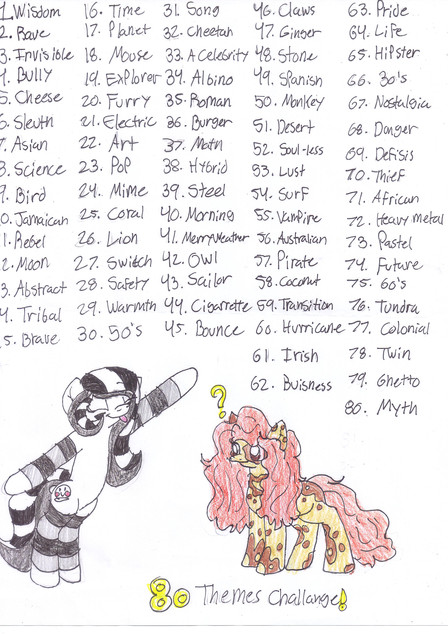 1.Wisdom
2. Rave
3. Invisible
4. Bully
5. Cheese
6. Sleuth
7. Asian
8. Science
9. Bird
0. Jamaican
1. Rebel
2. Moon
3. Abstract
4. Tribal
5. Brave
16. Time
17. Planet
18. Mouse
19. Explorer
20. Furry
21. Electric
22. Art
23. Pop
24. Mime
25. Coral
26. Lion
27. Switch
28. Safety
29. Warmth
30. 50's
31. Song
32. Cheetah
33. A Celebrity
34. Albino
35. Roman
36. Burger
37. Math
38. Hybrid
39. Steel
40. Morning
41. Merryweather
42. Owl
43. Sailor
44. Cigarrette
45. Bounce
46. Claws
47. Ginger
48. Stone
49. Spanish
50. Monkey
51. Desert
52. Soul-less
53. Lust
54. Surf
55. Vampire
56. Australian
57. Pirate
58. Coconut
59. Transition
60. Hurricane
61. Irish
62. Buisness
63. Pride
64. Life
65. Hipster
66. 30's
67. Nostalgia
68. Danger
69. Defisis
70. Thief
71. African
72. Heavy metal
73. Pastel
74. Future
75. 60's
76. Tundra
77. Colonial
78. Twin
79. Ghetto
80. Myth
?
80 Themes Challange!